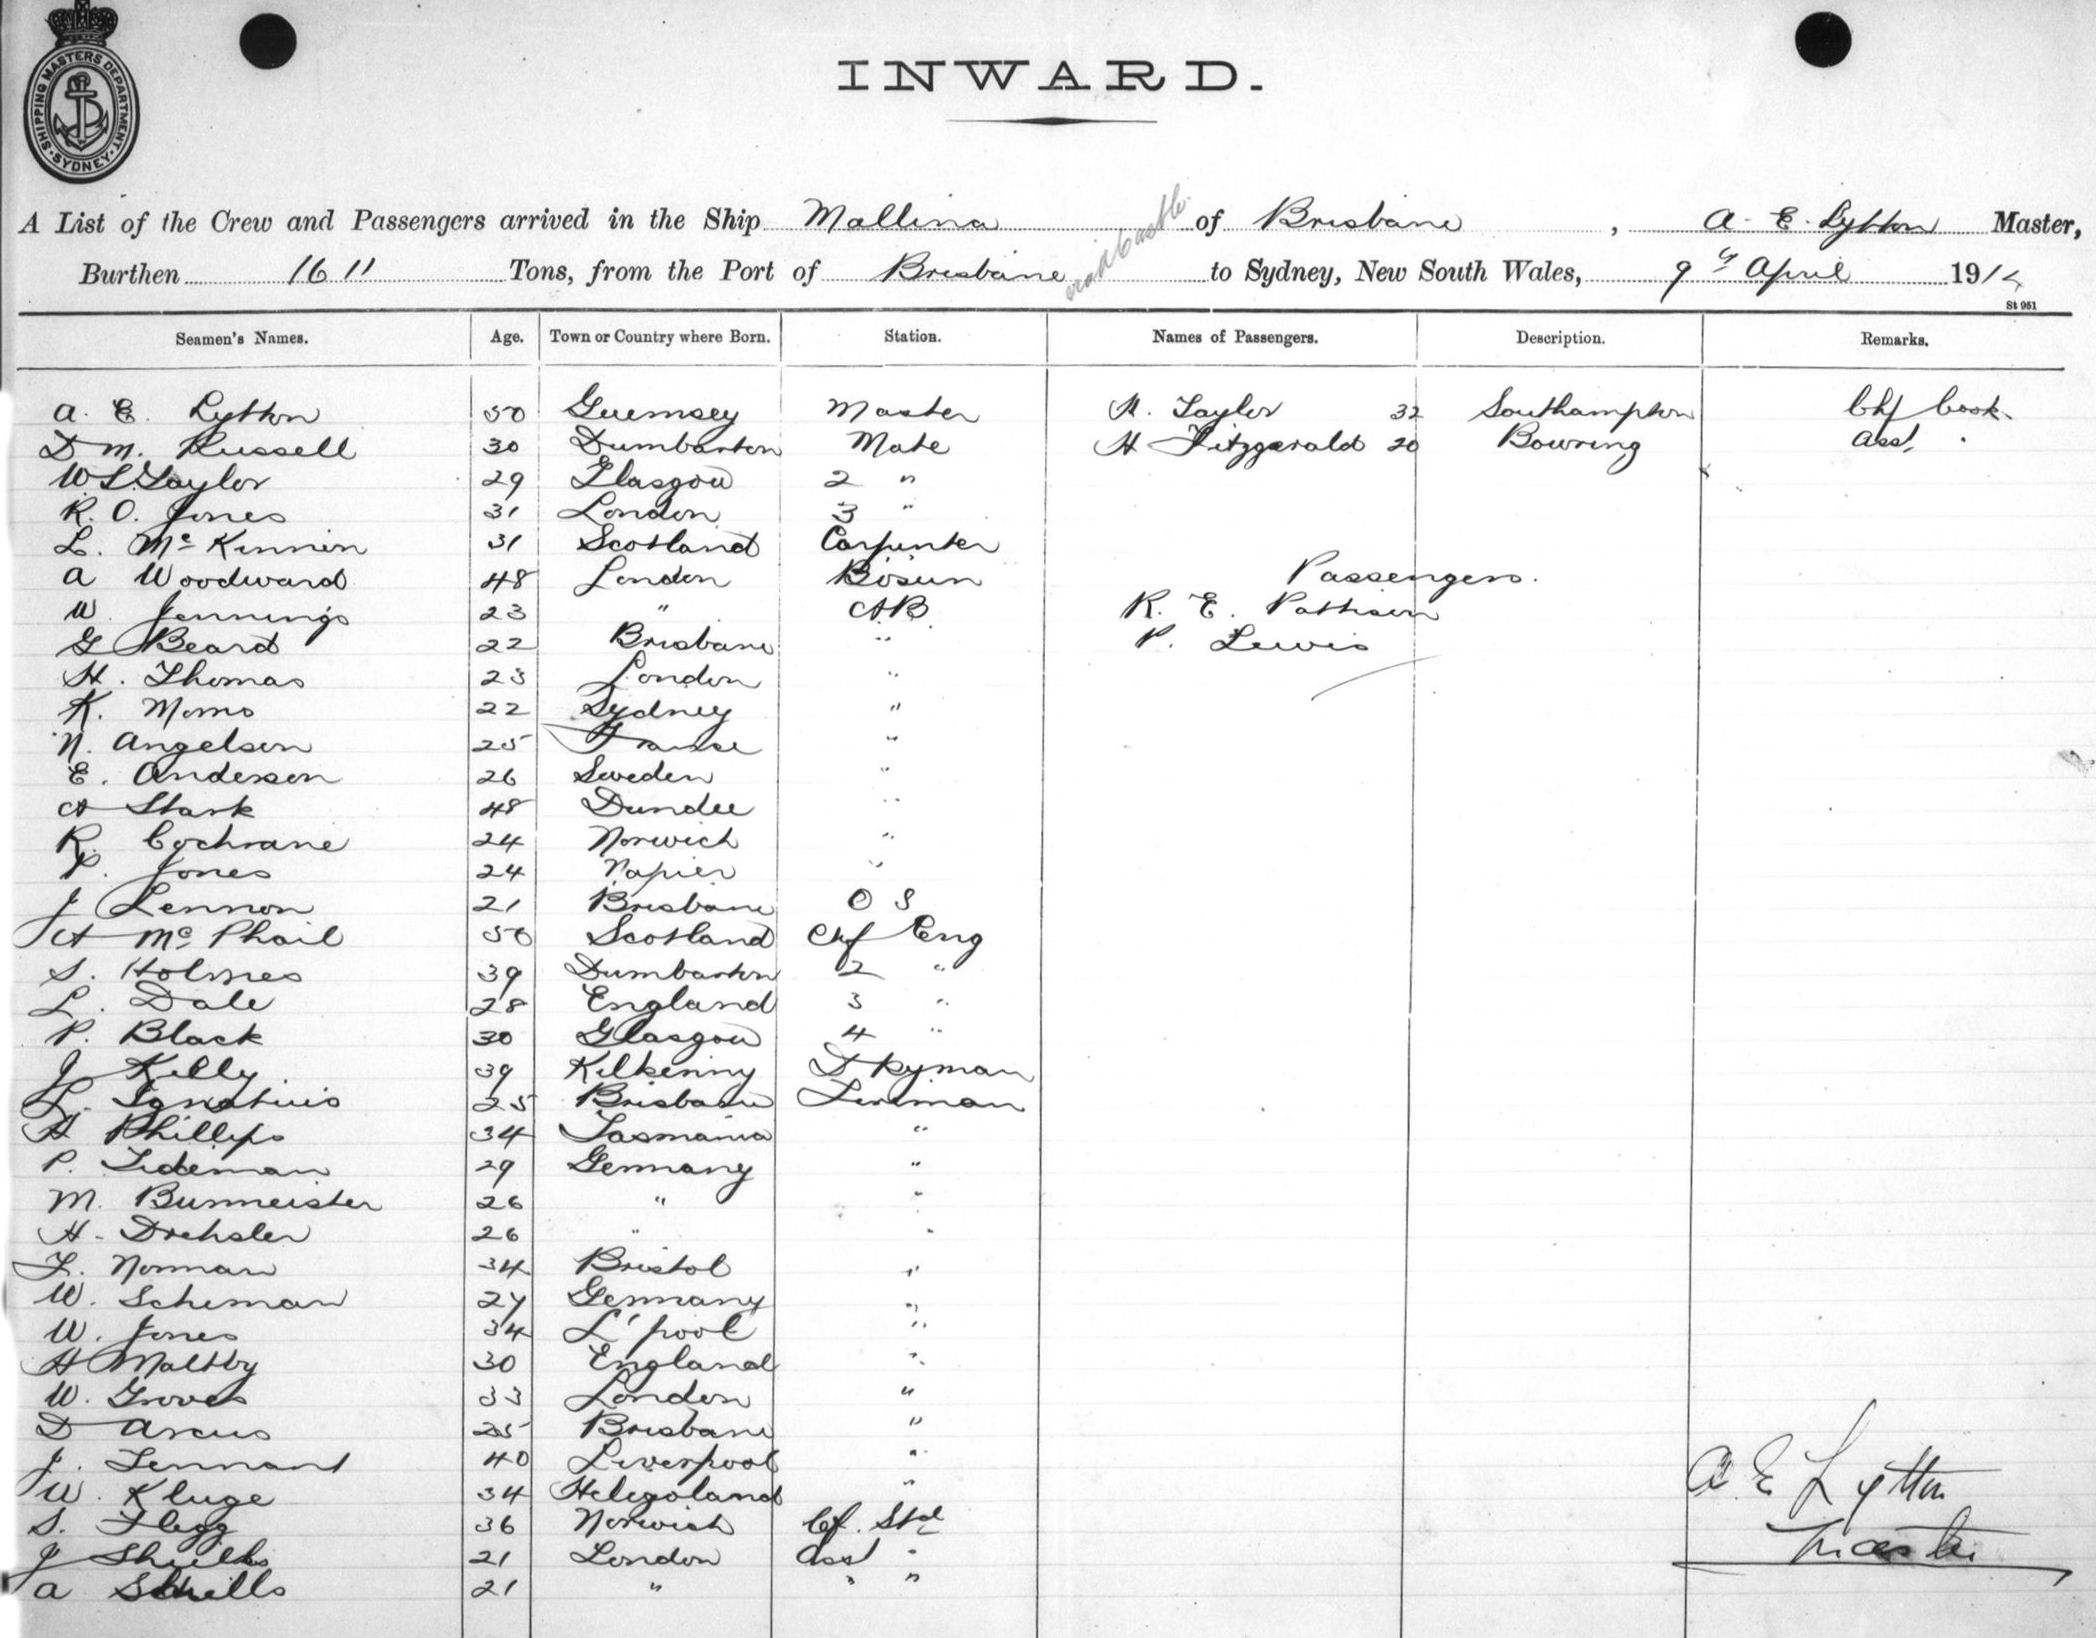 SHIPPING MASTERS DEPARTMENT · SYDNEY ·
INWARD.
A List of the Crew and Passengers arrived in the Ship Mallina of Brisbane, A. E. Lytton Master,
Burthen 1611 Tons, from the Port of Brisbane to Sydney, New South Wales, 9th April 191
St 951
Seamen's Names. Age. Town or Country where Born. Station. Names of Passengers. Description. Remarks.
A. E. Lytton 50 Guernsey Master Taylor 32 Southampton Chf Cook
D M. Russell 30 Dumbarton Mate H Fitzgerald 20 Bowring Asst "
W S Taylor 29 Glasgow 2 "
R. O. Jones 31 London 3 "
L. McKinnon 31 Scotland Carpenter
A Woodward 48 London Bosun Passengers.
W. Jennings 23 " AB R. E. Pattison
G Beard 22 Brisbane " P. Lewis
H. Thomas 23 London "
K. Morris 22 Sydney "
N. Angelsen 25 "
E. Anderson 26 Sweden "
A Stark 48 Dundee "
R. Cochrane 24 Norwich "
P. Jones 24 Napier "
J Lennon 21 Brisbane O S
A McPhail 50 Scotland Chf Eng
S. Holmes 39 Dumbarton 2 "
L. Dale 28 England 3 "
P. Black 30 Glasgow 4 "
J Kelly 39 Kilkenny Dkyman
L. Ignatius 25 Brisbane Fireman
A Phillips 34 Tasmania "
P. Tideman 29 Germany "
M. Burmeister 26 " "
H. Drehsler 26 " "
F. Norman 34 Bristol "
W. Scheman 27 Germany "
W. Jones 34 L'pool "
H Maltby 30 England "
W. Groves 33 London "
D Arcus 25 Brisbane "
J. Tennant 40 Liverpool "
W. Kluge 34 Heligoland "
S. Flegg 36 Norwich Cf. Std
J Shields 21 London Asst "
A 21 " " "
A E Lytton
Master